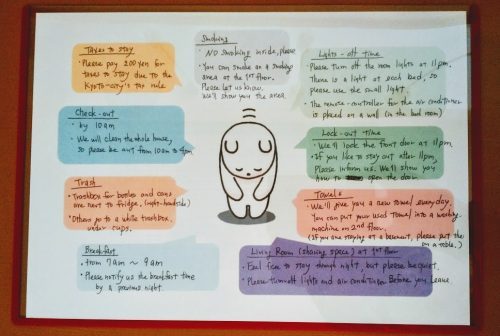 Taxes to stay
• Please pay 200 yen for
taxes to stay due to the
Kyoto-city's tax rule
Smoking
• NO smoking inside, please
• You can smoke on a smoking
area at the 1st floor.
Please let us know.
We'll show you the area.
Lights-off time
• Please turn off the room lights at 11pm.
There is a light at each bed, so
please use the small light.
• The remote-controller for the air conditioner
is placed on a wall (in the bed room)
Check-out
• by 10am
• We will clean the whole house,
so please be out from 10am to 4pm
Lock-out time
• We'll lock the front door at 11pm.
• If you like to stay out after 11pm,
Please inform us. We'll show you
how to open the door.
Trash
• Trashbox for bottles and cans
are next to fridge. (right-handside)
• Others go to a white trashbox
under cups.
Towels
• We'll give you a new towel every day.
You can put your used towel into a washing
machine on 2nd floor.
(If you are staying at a basement, please put the
on a table.)
Breakfast
• from 7am ~ 9am
• Please notify us the breakfast time
by a previous night.
Living Room (sharing space) at 1st floor
• Feel free to stay through night, but please be quiet.
• Please turn off lights and air conditioner before you leave.